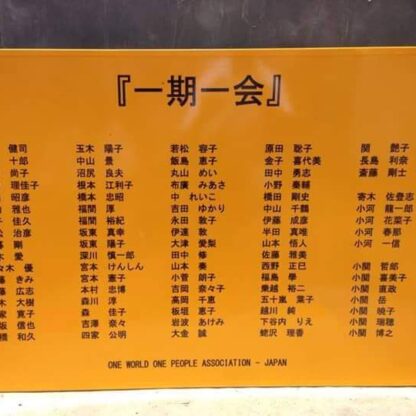 『一期一会』
健司 玉木 陽子 若松 容子 原田 聡子 関 艶子
十郎 中山 景 飯島 恵子 金子 喜代美 長島 利奈
尚子 沼尻 良夫 丸山 めい 田中 勇志 斎藤 剛士
理佳子 根本 江利子 布廣 みあさ 小野 秦輔
昭彦 橋本 忠昭 中 れいこ 橋田 剛史 寄木 佐登志
佳久 福間 厚 吉田 ゆかり 中山 千鶴 小河 龍一郎
治彦 福間 裕紀 永田 敦子 伊藤 成彦 小河 花菜子
剛 坂東 真幸 伊達 敦 半田 真唯 小河 春那
愛 坂東 陽子 大津 愛梨 山本 悟人 小河 一信
木 優 深川 慎一郎 田中 修 佐藤 雅美
きみ 宮本 けんしん 山本 奏 西野 正巳 小関 哲郎
広志 宮本 薫子 小菅 朗子 福島 學 小関 喜美子
大樹 本村 忠博 吉沢 奈々 乗越 裕二 小関 直政
寛子 森川 淳 高岡 千恵 五十嵐 葉子 小関 岳
信也 森 佳子 板垣 恵子 越川 純 小関 暁子
和久 吉澤 奈々 岩波 あけみ 下谷内 りえ 小関 瑞穂
四家 公明 大金 誠 蛯沢 理香 小関 博之
ONE WORLD ONE PEOPLE ASSOCIATION - JAPAN